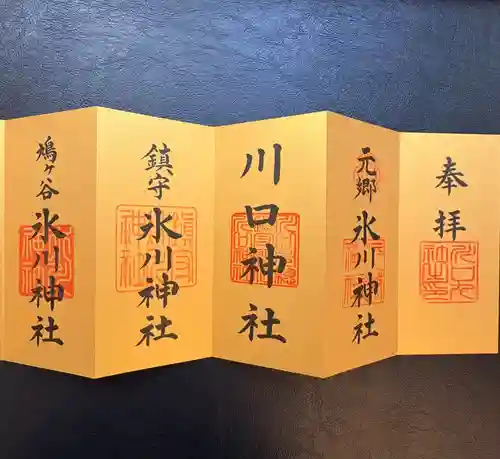 奉拝
元郷 氷川神社
川口神社
鎮守 氷川神社
鳩ヶ谷 氷川神社